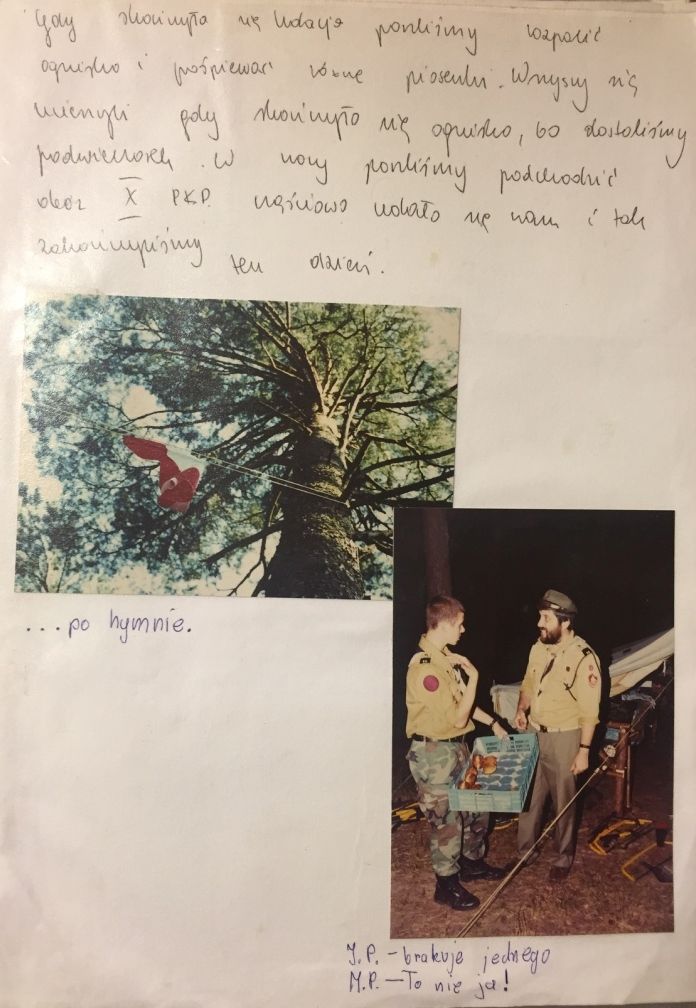 Gdy skończyła się kolacja poszliśmy rozpalić
ognisko i pośpiewać różne piosenki. Wszyscy się
cieszyli gdy skończyło się ognisko, bo dostaliśmy
podwieczorek. W nocy poszliśmy podchodzić
obóz X PKP. częściowo udało się nam i tak
zakończyliśmy
ten dzień.
...po hymnie.
J.P. - brakuje jednego
M.P. - To nie ja!